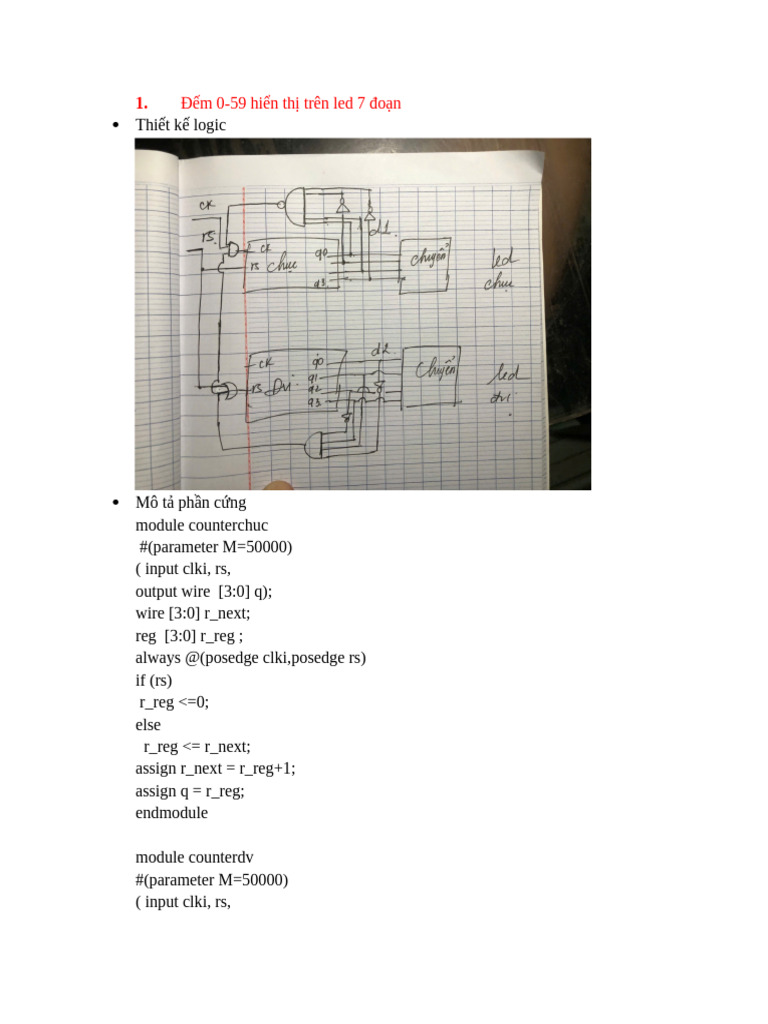 1. Đếm 0-59 hiển thị trên led 7 đoạn
• Thiết kế logic
ck
rs
d1.
ck q0
rs chục
q3
chuyển
led
chục
d2.
ck q0
q1
rs Đvi q2
q3
chuyển
led
đvi
• Mô tả phần cứng
module counterchuc
#(parameter M=50000)
( input clki, rs,
output wire [3:0] q);
wire [3:0] r_next;
reg [3:0] r_reg ;
always @(posedge clki,posedge rs)
if (rs)
r_reg <=0;
else
r_reg <= r_next;
assign r_next = r_reg+1;
assign q = r_reg;
endmodule
module counterdv
#(parameter M=50000)
( input clki, rs,